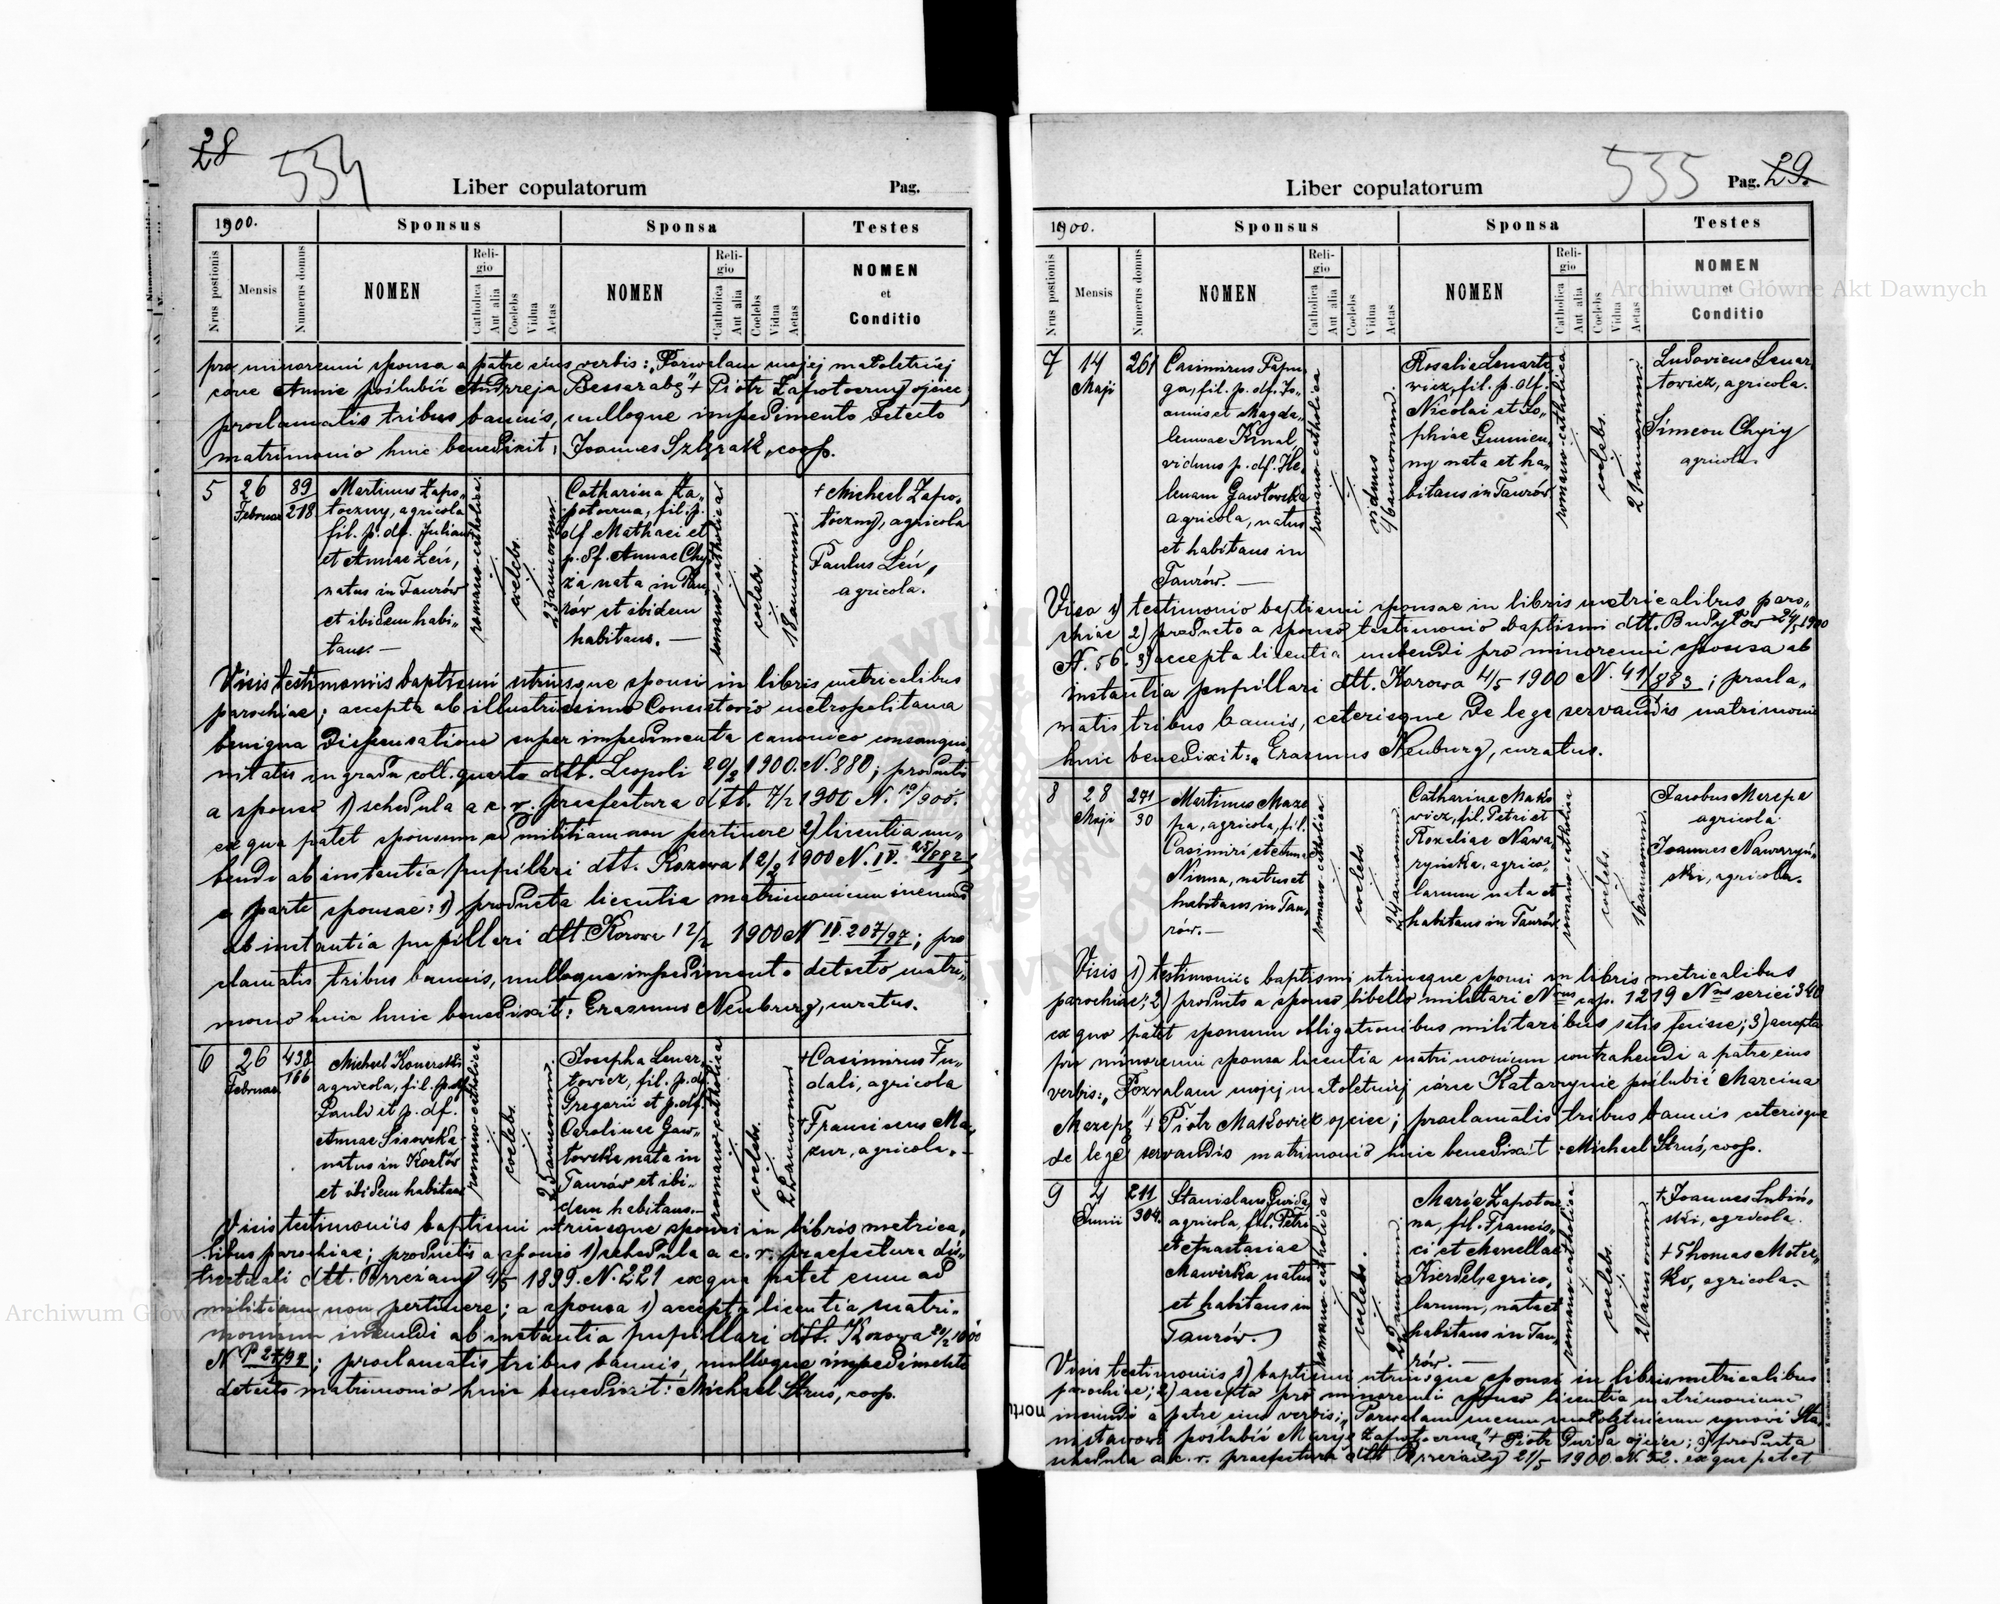 28
534
Liber copulatorum
Pag.
1900.
Sponsus
Sponsa
Testes
Nrus positionis
Mensis
Numerus domus
NOMEN
Religio
Catholica
Aut alia
Coelebs
Vidua
Aetas
NOMEN
Religio
Catholica
Aut alia
Coelebs
Vidua
Aetas
NOMEN
et
Conditio
pro minorenni sponsa a patre eius verbis: „Pozwalam mojej małoletniej
córce Annie poślubić Andrzeja Bessarabę" + Piotr Zapotoczny ojciec;
proclamatis tribus bannis, nulloque impedimento detecto
matrimonio huic benedixit: Joannes Sztyrak, coop.
5
26
Februar
89
218
Martinus Zapo-
toczny, agricola
fil. p. df. Juliani
et Annae Leń,
natus in Taurów
et ibidem habi-
tans. —
romano-catholica
coelebs.
23 annorum.
Catharina Za-
potoczna, fil. p.
df Mathaei et
p. df. Annae Chy-
za nata in Tau-
rów et ibidem
habitans. —
romano-catholica
coelebs.
18 annorum.
+ Michael Zapo-
toczny, agricola
Paulus Leń,
agricola.
Visis testimoniis baptismi utriusque sponsi in libris metricalibus
parochiae; accepta ab illustrissimo Consistorio metropolitana
benigna dispensatione super impedimenta canonico consangui-
nitatis in gradu coll. quarto dtt. Leopoli 20/2 1900. N. 880; productis
a sponso 1) schedula a c. r. praefectura dtt. 7/2 1900 N. 19/900.
ex qua patet sponsum ad militiam non pertinere 2) licentia nu-
bendi ab instantia pupillari dtt. Kozowa 12/2 1900 N. IV. 25/882;
a parte sponsae: 1) producta licentia matrimonium ineundi
ab instantia pupillari dtt Kozowa 12/2 1900 N IV. 207/97; pro
clamatis tribus bannis, nulloque impedimento detecto matri-
monio huic huic benedixit: Erasmus Neuburg, curatus.
6
26
Februar
438
166
Michael Konerski
agricola, fil. p. df.
Pauli et p. df.
Annae Sisowska
natus in Kozłów
et ibidem habitans
romano-catholica
coelebs.
25 annorum.
Josepha Lenar-
towicz, fil. p. df.
Gregorii et p. df.
Carolinae Gaw-
łowska nata in
Taurów et ibi-
dem habitans. —
romano-catholica
coelebs.
22 annorum
+ Casimirus Fu-
dali, agricola
+ Franciscus Ma-
zur, agricola. —
Visis testimoniis baptismi utriusque sponsi in libris metrica-
libus parochiae; productis a sponso 1) schedula a c. r. praefectura dis-
trictuali dtt. Brzeżany 4/5 1899. N. 221 ex qua patet eum ad
militiam non pertinere; a sponsa 1) accepta licentia matri-
monium ineundi ab instantia pupillari dtt. Kozowa 1900
N P 27/98; proclamatis tribus bannis, nulloque impedimento
detecto matrimonio huic benedixit: Michael Struś, coop.
535
Liber copulatorum
Pag. 29.
1900.
Sponsus
Sponsa
Testes
Nrus positionis
Mensis
Numerus domus
NOMEN
Religio
Catholica
Aut alia
Coelebs
Vidua
Aetas
NOMEN
Religio
Catholica
Aut alia
Coelebs
Vidua
Aetas
NOMEN
et
Conditio
7
14
Maji
261
Casimirus Papu-
ga, fil. p. df. Jo-
annis et Magda-
lennae Kinal,
viduus p. df. He-
lenam Gawłowska
agricola, natus
et habitans in
Taurów. —
romano-catholica
viduus
46 annorum.
Rosalia Lenarto
wicz, fil. p. df.
Nicolai et So-
phiae Gumien-
ny nata et ha-
bitans in Taurów
romano-catholica
coelebs.
21 annorum.
Ludovicus Lenar
towicz, agricola.
Simeon Chyży
agricola.
Viso 1) testimonio baptismi sponsae in libris metricalibus paro-
chiae 2) producto a sponso testimonio baptismi dtt. Budyłów 1900
N. 56. 3) accepta licentia nubendi pro minorenni sponsa ab
instantia pupillari dtt. Kozowa 4/5 1900 N. 41/883; procla-
matis tribus bannis, ceterisque de lege servandis matrimonio
huic benedixit: Erasmus Neuburg, curatus.
8
28
Maji
271
30
Martinus Maze
pa, agricola, fil.
Casimiri et Annae
Ninna, natus et
habitans in Tau-
rów. —
romano-catholica
coelebs.
24 annorum.
Catharina Mako
wicz, fil. Petri et
Rozaliae Nawa
ryńska, agrico-
larum nata et
habitans in Taurów
romano-catholica
coelebs.
16 annorum.
Jacobus Merepa
agricola
Joannes Nawaryń-
ski, agricola.
Visis 1) testimoniis baptismi utriusque sponsi in libris metricalibus
parochiae; 2) producto a sponso libello militari Nrus cap. 1219 Nrus seriei 340
ex quo patet sponsum obligationibus militaribus satis fecisse; 3) accepta
pro minorenni sponsa licentia matrimonium contrahendi a patre eius
verbis: „Pozwalam mojej małoletniej córce Katarzynie poślubić Marcina
Merepę" + Piotr Makowicz ojciec; proclamatis tribus bannis ceterisque
de lege servandis matrimonio huic benedixit: Michael Struś, coop.
9
4
Junii
211
304.
Stanislaus Gwida,
agricola, fil. Petri
et Anastasiae
Mawirka natus
et habitans in
Taurów.
romano-catholica
coelebs.
22 annorum
Maria Zapotocz-
na, fil. Francis-
ci et Marcellae
Kierdel, agrico-
larum, nata et
habitans in Tau-
rów. —
romano-catholica
coelebs.
20 annorum
+ Joannes Lubiń-
ski, agricola.
+ Thomas Moter-
ko, agricola. —
Visis testimoniis 1) baptismi utriusque sponsi in libris metricalibus
parochiae; 2) accepta pro minorenni sponso licentia matrimonium
ineundi a patre eius verbis: „Pozwalam memu małoletniemu synowi Sta-
nisławowi poślubić Maryę Zapotoczną" + Piotr Gwida ojciec; 3) producta
schedula a c. r. praefectura dtt Brzeżany 21/5 1900. N. 52. ex qua patet
Archiwum Główne Akt Dawnych
Archiwum Główne Akt Dawnych